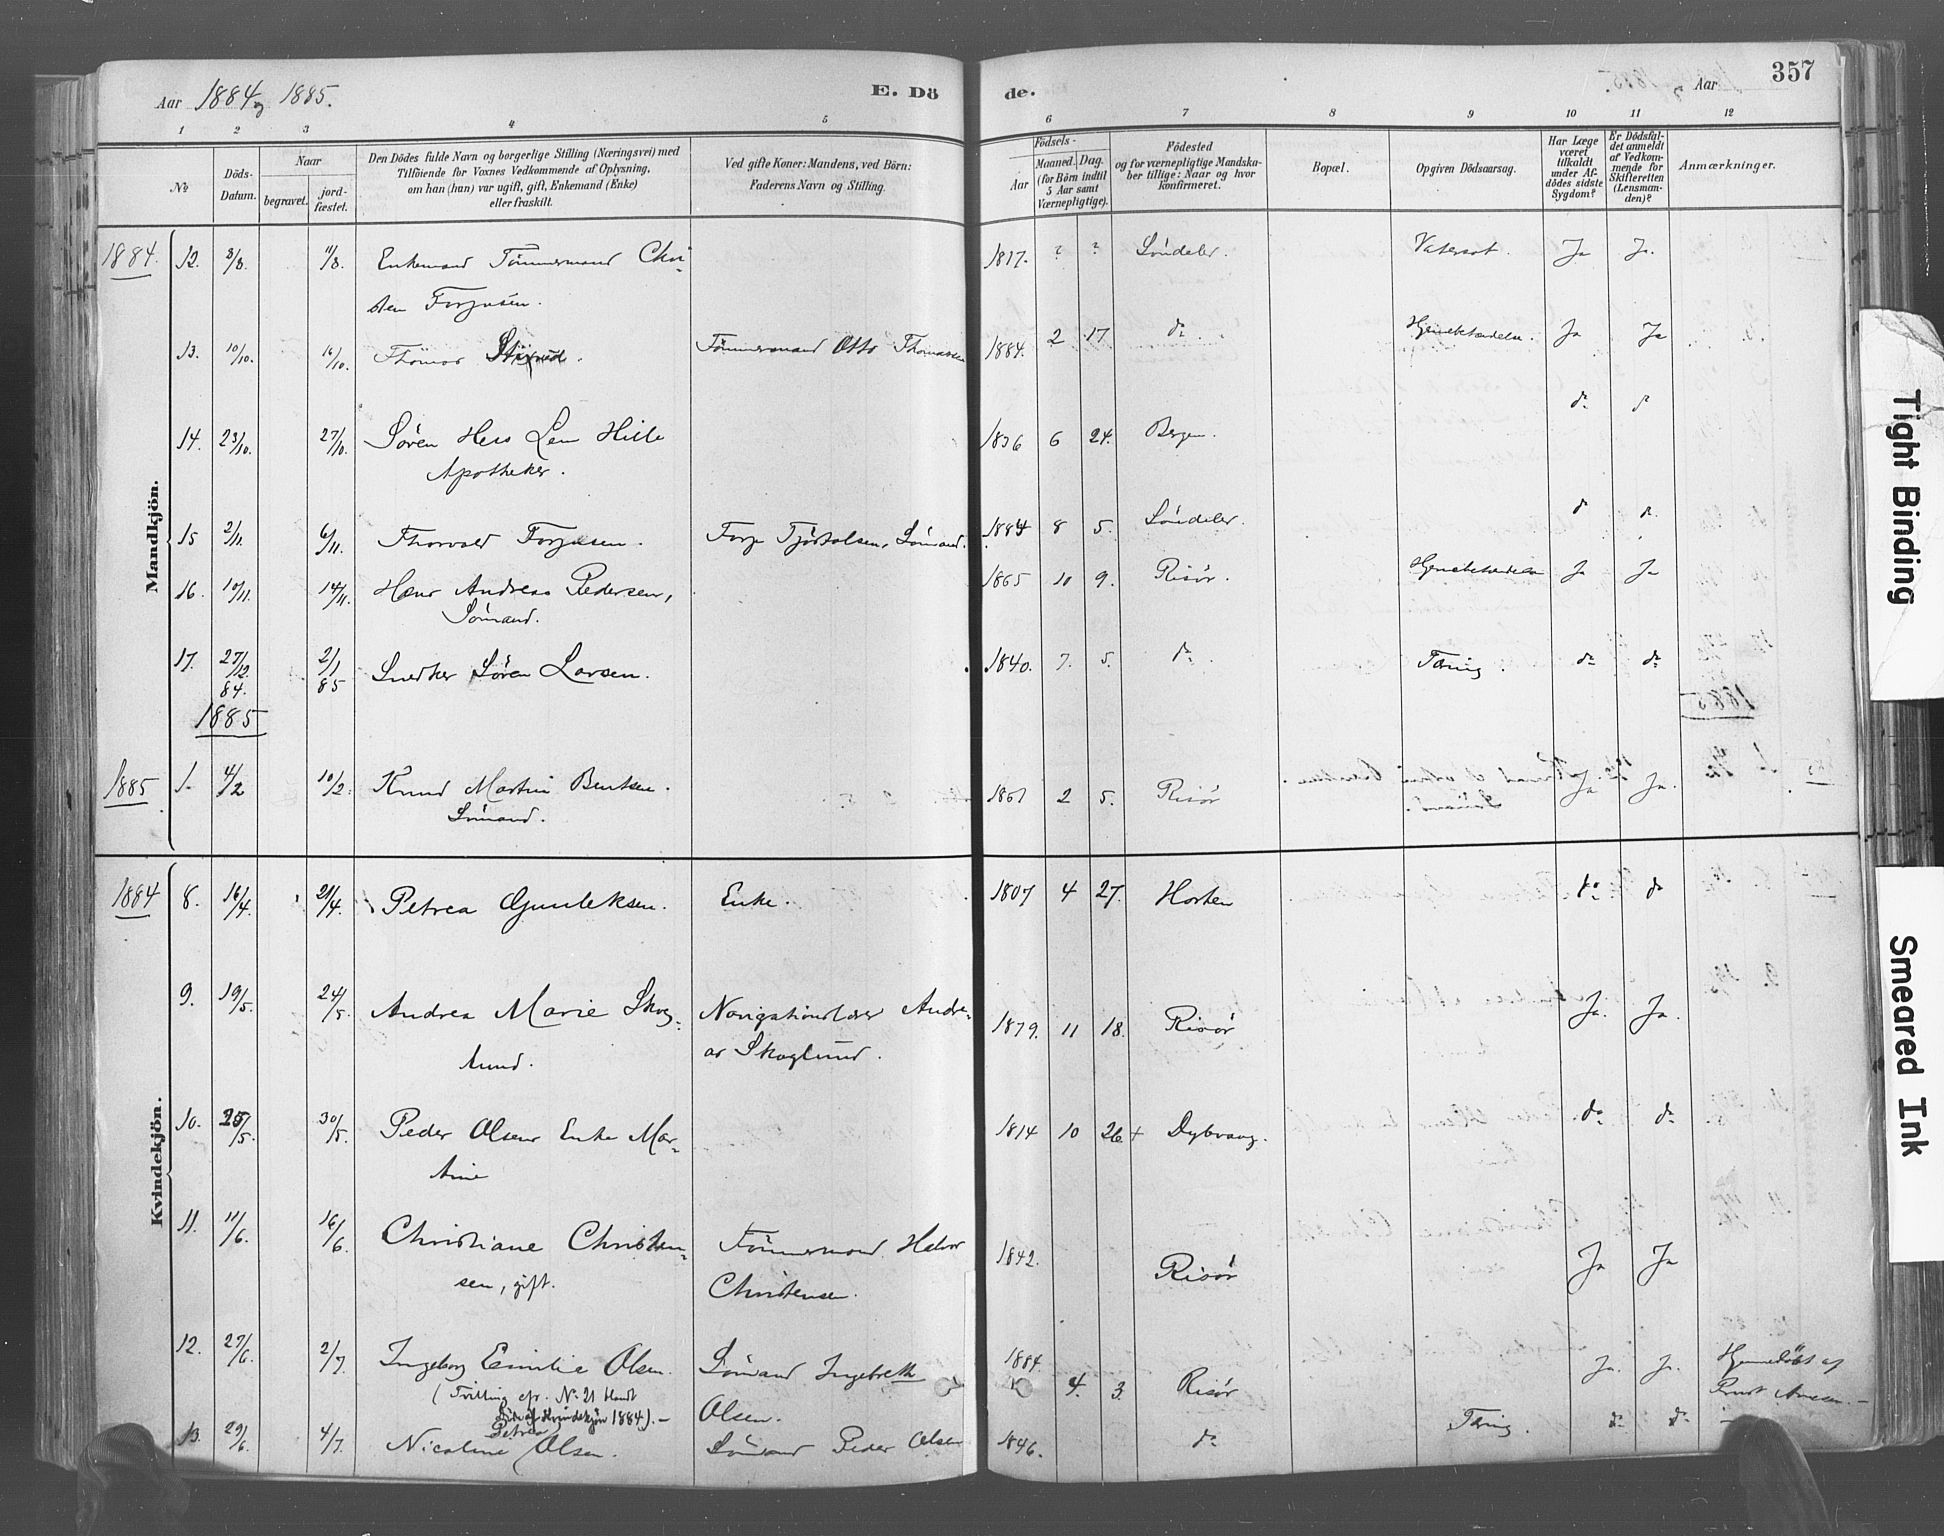 Aar 1884 og 1885.
E. Dö
de.
Aar
357
1 2 3 4 5 6 7 8 9 10 11 12
No
Döds-Datum.
Naar
begravet.
jord-fæstet.
Den Dödes fulde Navn og borgerlige Stilling (Næringsvei) med
Tilföiende for Voxnes Vedkommende af Oplysning,
om han (hun) var ugift, gift, Enkemand (Enke)
eller fraskilt.
Ved gifte Koner: Mandens, ved Börn:
Faderens Navn og Stilling.
Födsels-
Aar
Maaned. Dag.
(for Börn indtil
5 Aar samt
Værnepligtige).
Födested
og for værnepligtige Mandska-
ber tillige: Naar og hvor
konfirmeret.
Bopæl.
Opgiven Dödsaarsag.
Har Læge
været
tilkaldt
under Af-
dödes sidste
Sygdom?
Er Dödsfal-
det anmeldt
af Vedkom-
mende for
Skifteretten
(Lensman-
den)?
Anmærkninger.
Mandkjön.
1884. 12. 3/8. 11/8. Enkemand Tömmermand Chri- 1817. ? ? Söndeler. Vatersot. Ja Ja.
sten Torjusen.
13. 10/10. 16/10. Thomas Tömmermand Otto Thomassen 1884. 2 17. do Hjernebetændelse. Ja Ja
14. 23/10. 27/10. Sören Hess Hille 1836 6 24. Bergen. do do
Apotheker.
15 2/11. 6/11. Thorvald Torjusen. Sömand. 8 5. Söndeler. do do
16. 10/11. 14/11. Hans Andreas Pedersen, 1865 10 9. Risör. Hjernebetændelse Ja Ja
Sömand.
17. 27/12. 84. 2/1 85 Snedker Sören Larsen. 1840. 7. 5. do Tæring. do do
1885
1885 1. 4/2 10/2. Knud Martin Bentsen. 1861 2 5. Risör Ja Ja.
Sömand.
Kvindekjön.
1884 8. 16/4. 21/4. Petrea Gunleksen. Enke. 1807 4 27. Horten do do
9. 19/5. 24/5. Andrea Marie Skog- Navigationslærer Andre- 1879. 11 18. Risör Ja. Ja.
lund. as Skoglund.
10. 25/5. 30/5. Peder Olsens Enke Mar- 1814 10 26 Dybvaag. do do
tine
11. 11/6. 16/6. Christiane Christen- Tömmermand Halvor 1842. Risör Ja Ja
sen, gift. Christensen.
12. 27/6. 2/7. Ingeborg Emilie Olsen. Sömand Ingebreth 1884. 4. 3. Risör Ja. Ja. Hjemmedöbt af
(Tvilling cfr. No 21 Olsen.
Kvindekjön 1884).-
13. 29/6. 4/7. Petrea
Nicoline Olsen. Sömand Peder Olsen 1846. do Tæring. do do
Tight Binding
Smeared Ink